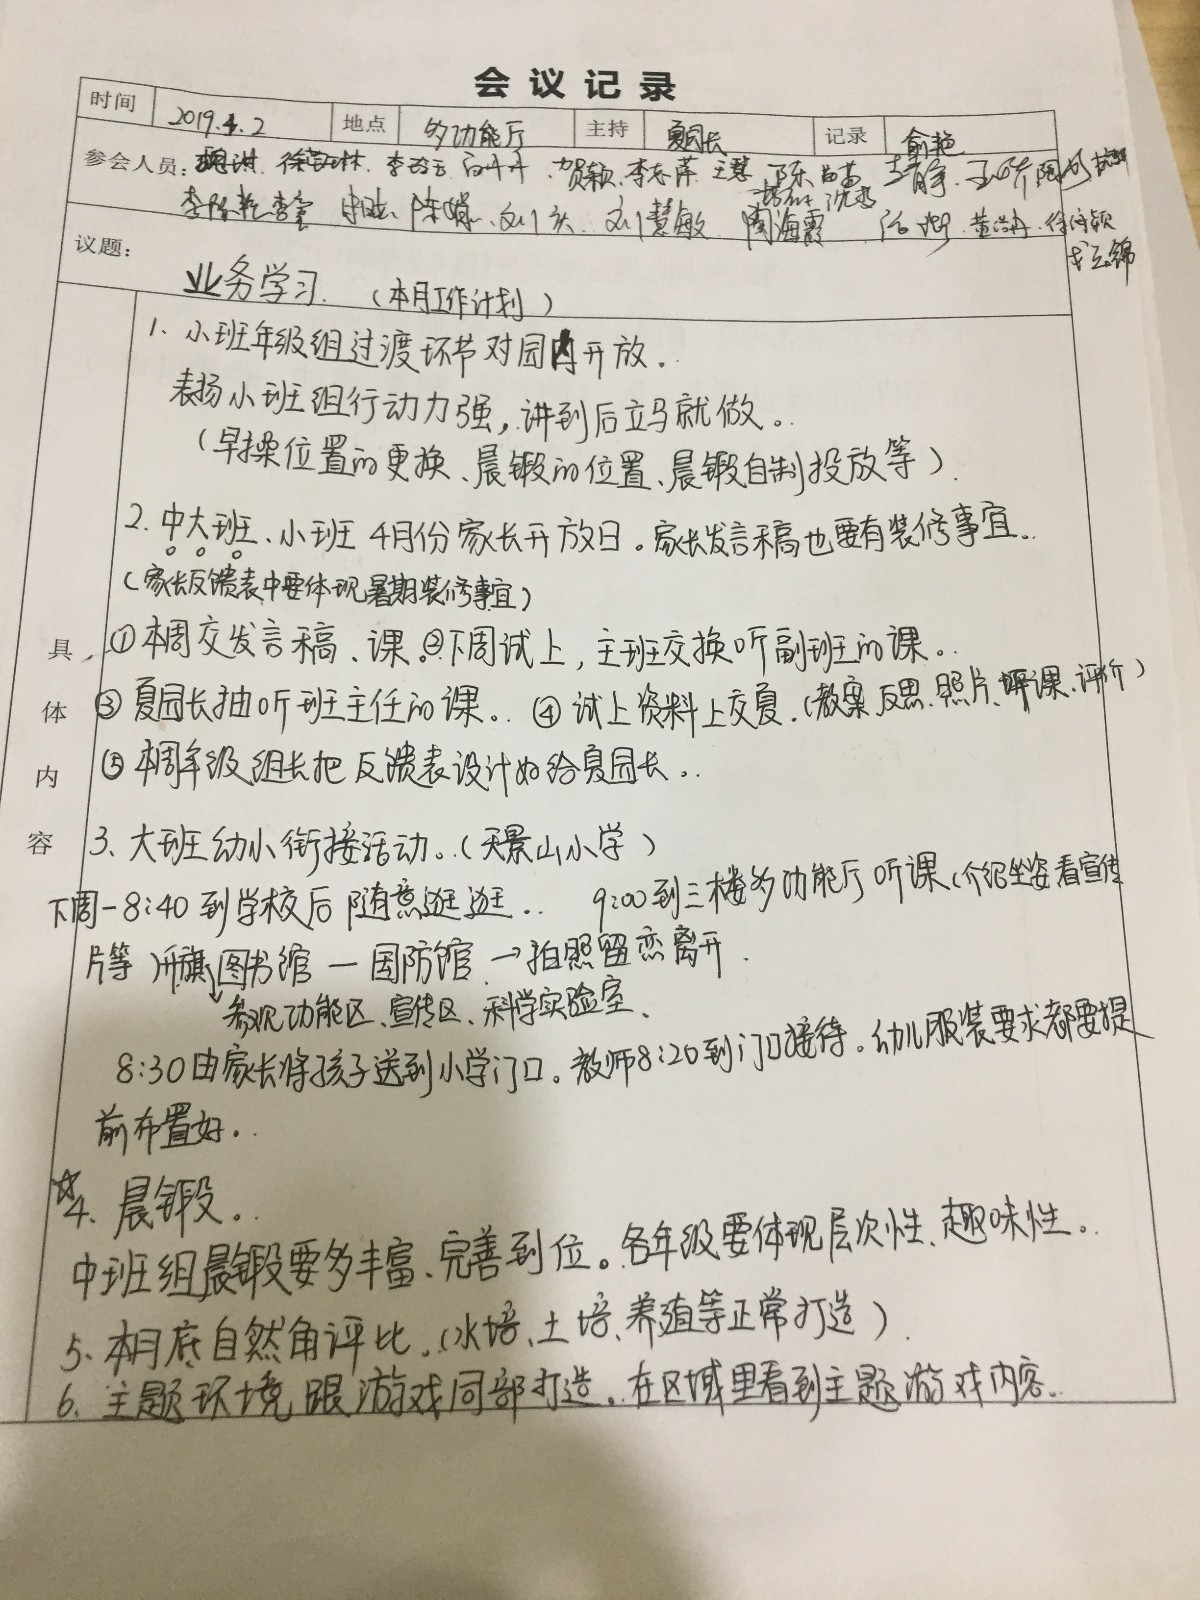 会议记录
时间 2019.4.2 地点 多功能厅 主持 夏园长 记录 俞艳
参会人员: 贺颖 李志萍 王慧 苗苗
陈娟 刘庆 刘慧敏 周海霞
议题:
业务学习 (本月工作计划)
1、小班年级组过渡环节对园内开放。
表扬小班组行动力强,讲到后立马就做。
(早操位置的更换、晨锻的位置、晨锻自制投放等)
2.中大班、小班4月份家长开放日。家长发言稿也要有装修事宜。
(家长反馈表中要体现暑期装修事宜)
①本周交发言稿、课。②下周试上,主班交换听副班的课。
③夏园长抽听班主任的课。④试上资料上交夏.(教案、反思、照片、评课、评价)
⑤本周年级组长把反馈表设计好给夏园长。
具体内容
3、大班幼小衔接活动。(天景山小学)
下周一8:40到学校后随意逛逛。 9:00到三楼多功能厅听课(介绍坐姿看宣传
片等)升旗 图书馆—国防馆→拍照留恋离开.
参观功能区、宣传区、科学实验室、
8:30由家长将孩子送到小学门口。教师8:20到门口接待。幼儿服装要求都要提
前布置好。
☆4、晨锻。
中班组晨锻要多丰富、完善到位。各年级要体现层次性、趣味性。
5、本月底自然角评比。(水培、土培、养殖等正常打造)
6、主题环境跟游戏同部打造。在区域里看到主题游戏内容。